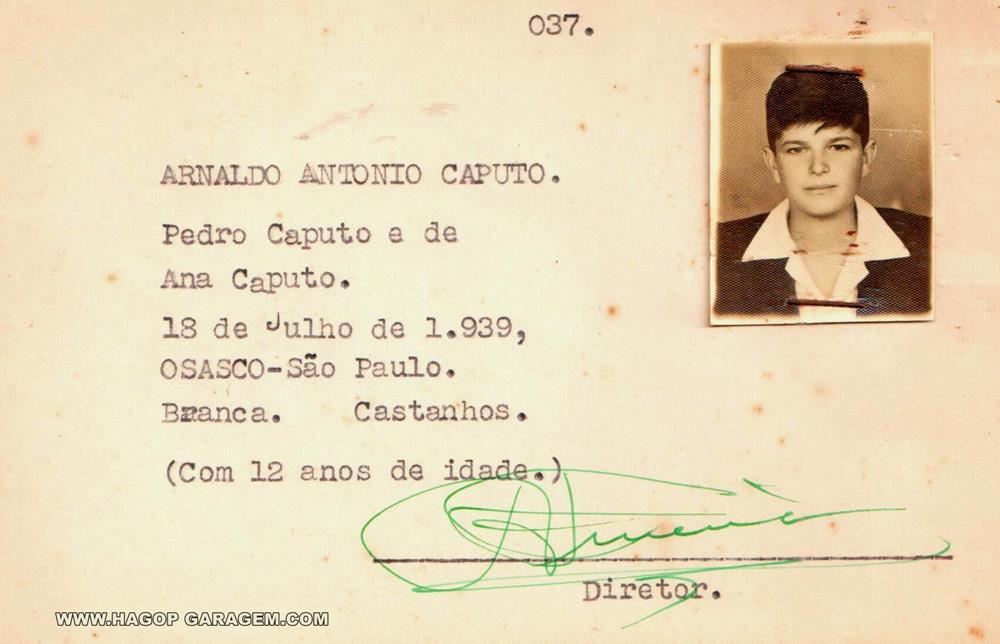 037.
ARNALDO ANTONIO CAPUTO.
Pedro Caputo e de
Ana Caputo.
18 de Julho de 1.939,
OSASCO-São Paulo.
Branca. Castanhos.
(Com 12 anos de idade.)
Diretor.
WWW.HAGOP GARAGEM.COM